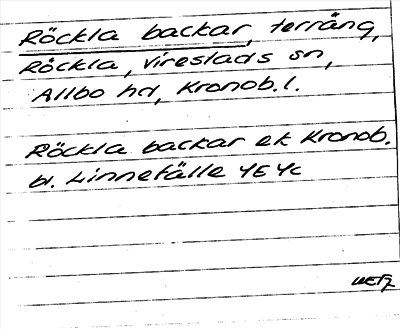 Röckla backar, terräng,
Röckla, Vireslads sn,
Allbo hd, Kronob. l.
Röckla backar ek Kronob.
bl. Linnefälle 4E 4c